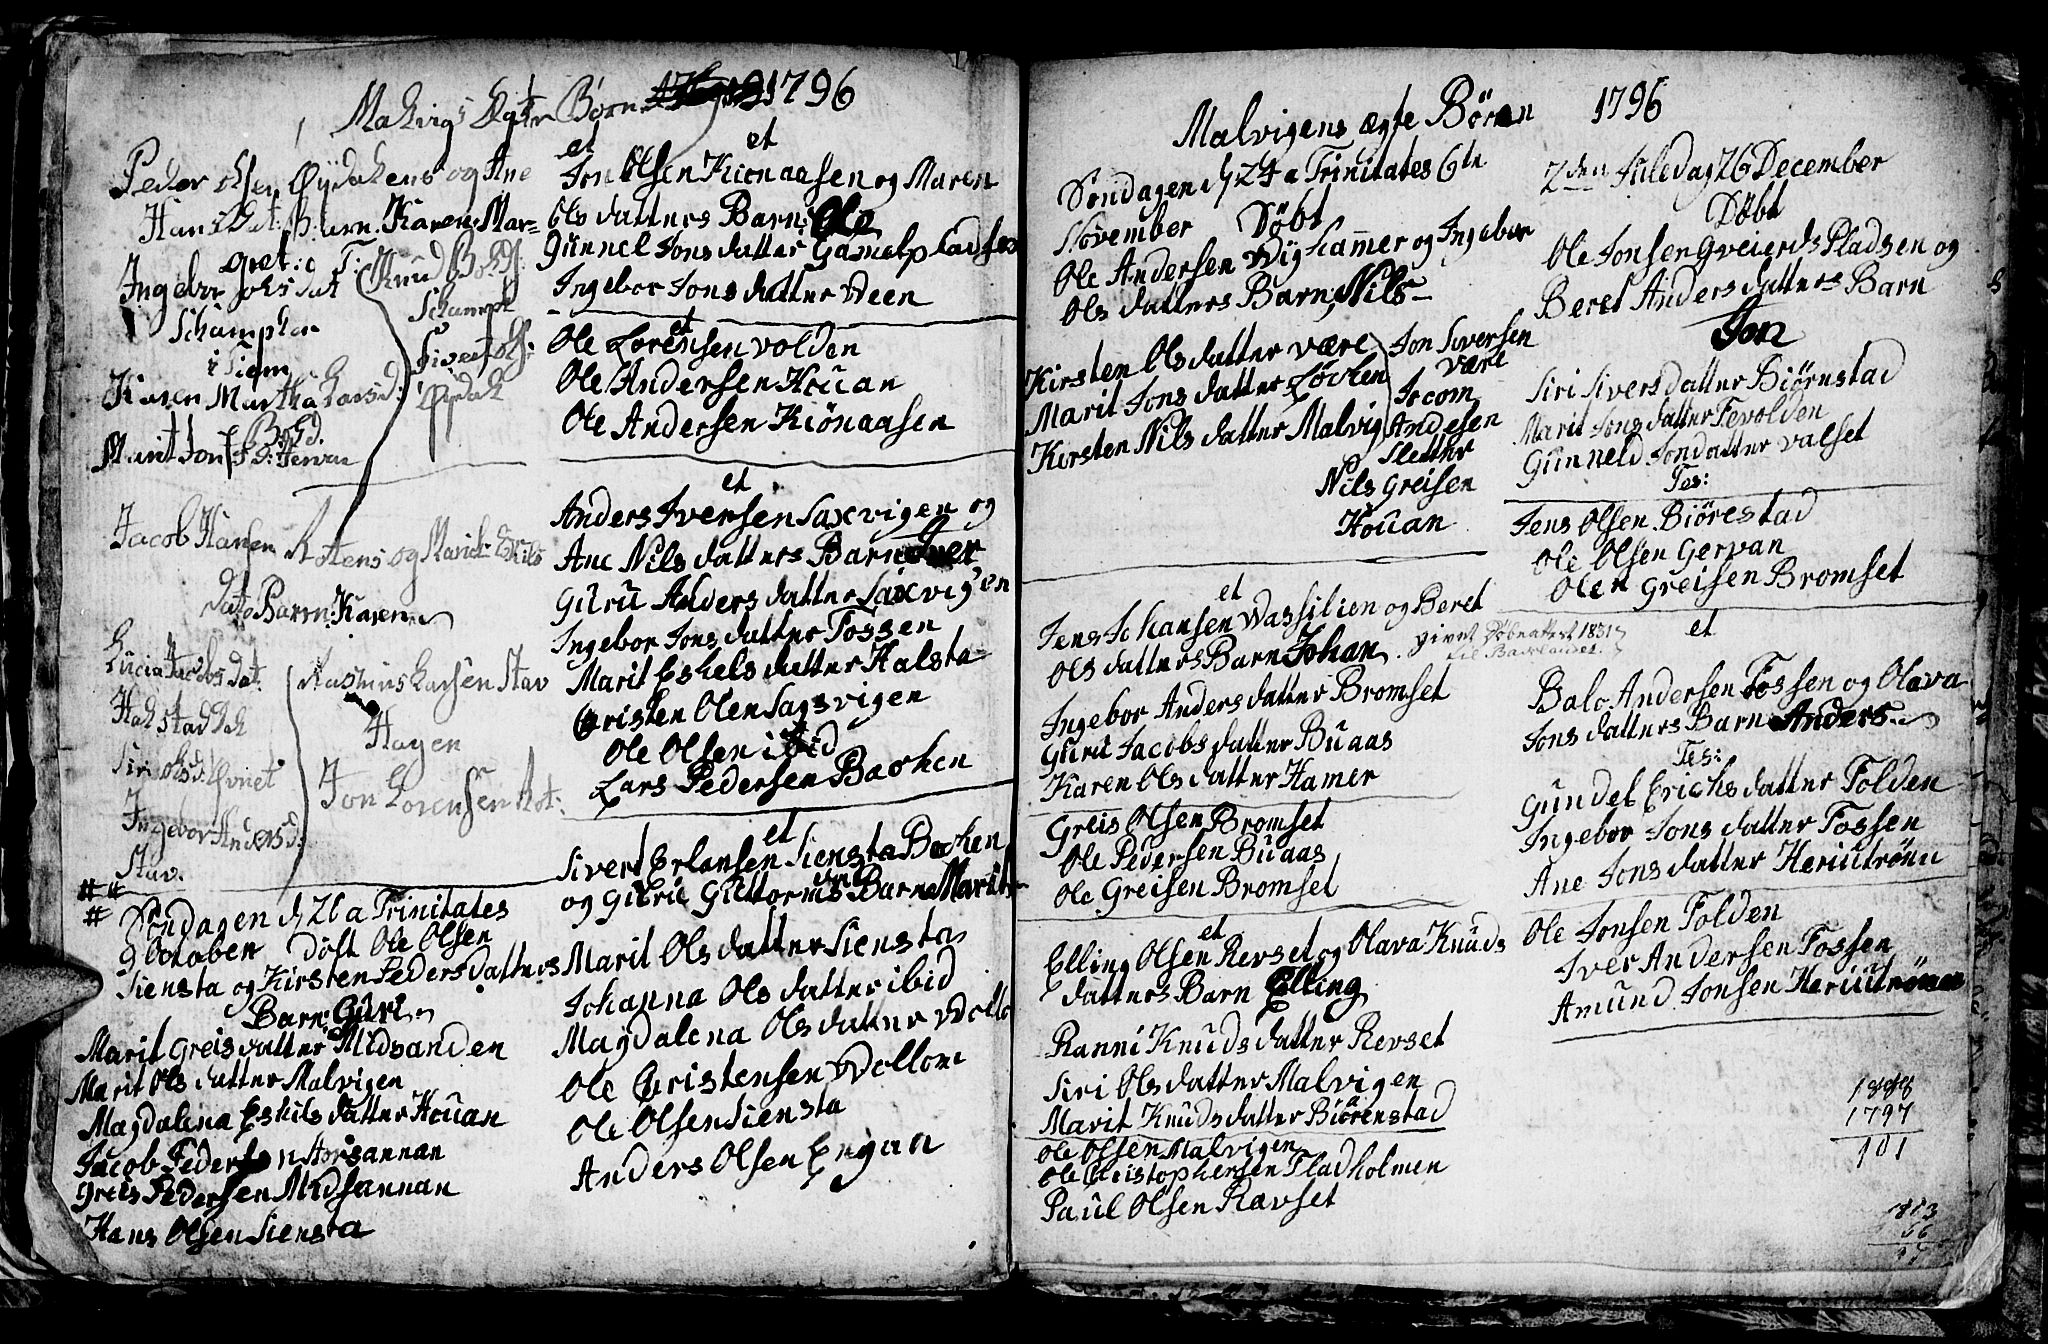 Malvigs Ægte Børn 1796
Peder Olsen Øydalens og Ane
Hans Dat: Barn: Karen Mar=
gret: T:
Ingebor Johsdat
Schampher
i Siem
Karen Martha Larsd:
Marit Jons D:
Knud
Schamph
Sivert Ols:
Øydal
Jacob Hansen Rotens og Marit Eskils
Dat: Barn: Karen
Lucia Jacobs Dat.
Halstad
Siri Olsd:
Ingebor Andersd:
Stav.
Rasmus Larsen Stav
Hagen
Jon Lorensen Rot:
Søndagen d. 20 a Trinitates
9 October døbt Ole Olsen
Siensta og Kirsten Pedersdatters
Barn: Guri
Marit Greisdatter Midsanden
Marit Olsdatter Malvigen
Magdalena Eskilsdatter Houan
Jacob Pedersen Horsannan
Greis Pedersen Midsannan
Hans Olsen Siensta
et et
Jon Olsen Kiønaasen og Maren
Olsdatters Barn: Ole
Gunnel Jonsdatter Gamelpladsen
Ingebor Jonsdatter Veen
et
Ole Lorensen Volden
Ole Andersen Houan
Ole Andersen Kiønaasen
et
Anders Iversen Saxvigen og
Ane Nilsdatters Barn Iver
Guru Andersdatter Saxvigen
Ingebor Jonsdatter Fossen
Marit Eskelsdatter Halsta
Christen Olen Sagsvigen
Ole Olsen ibid
Lars Pedersen Backen
et
Sivert Erlansen Siensta Backen
og Guru Guttorms Barn Marit
Marit Olsdatter Siensta
Johanna Olsdatter ibid
Magdalena Olsdatter
Ole Christensen
Ole Olsen Siensta
Anders Olsen Engan
Malvigens ægte Børen 1796
Søndagen d. 24 a Trinitates 6te
November Døbt
Ole Andersen Vighammer og Ingebor
Olsdatters Barn Nils
Kirsten Olsdatter være
Marit Jonsdatter Løchen
Kirsten Nilsdatter Malvig
Jon Siversen
være
Jocom
Andesen
Sletter
Nils Greisen
Houan
et
Jens Johansen Vassilien og Beret
Olsdatters Barn Johan
givet Døbeattest 1831
Ingebor Andersdatter Bromset
Guru Jacobsdatter Buaas
Karen Olsdatter Hamer
Greis Olsen Bromset
Ole Pedersen Buaas
Ole Greisen Bromset
et
Elling Olsen Revset og Olava Knuds
datters Barn Elling
Ranni Knudsdatter Revset
Siri Olsdatter Malvigen
Marit Knudsdatter Biørenstad
Ole Olsen Malvigen
Ole Christophersen Fladholmen
Paul Olsen Ravset
2den Juledag 26 December
Døbt
Ole Jonsen Greierds Pladsen og
Beret Andersdatters Barn
Jon
Siri Siversdatter Biørnstad
Marit Jonsdatter Fevolden
Gunneld Jondatter Valset
Tes:
Jens Olsen Biørestad
Ole Olsen Gervan
Olen Greisen Bromset
et
Balo Andersen Fossen og Olava
Jonsdatters Barn Anders
Tes:
Gundel Erichsdatter Folden
Ingebor Jonsdatter Fossen
Ane Jonsdatter Heriutrønn
Ole Jonsen Folden
Iver Andersen Fossen
Amund Jonsen Heriutrønen
1797
101